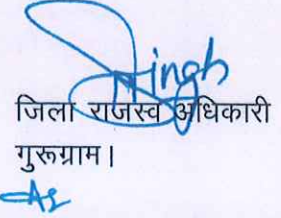 Singh
जिला राजस्व अधिकारी
गुरूग्राम।